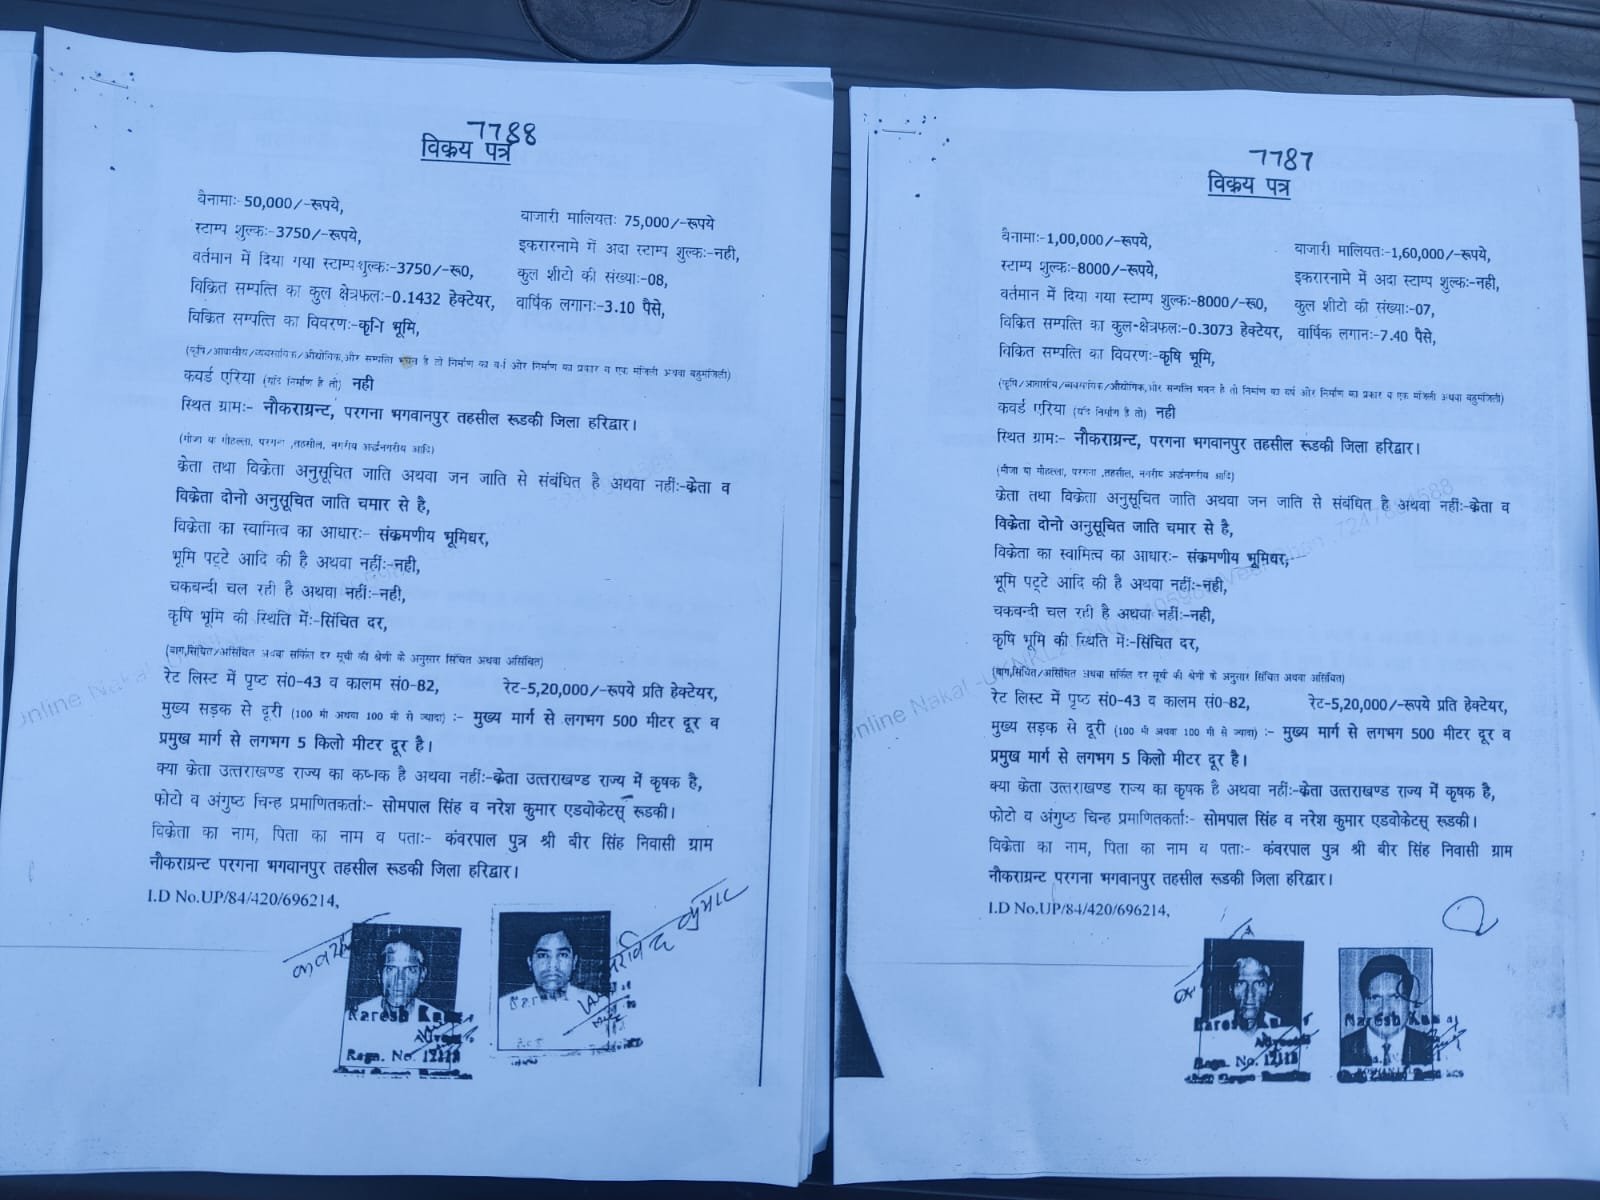 7788
विक्रय पत्र
बैनामाः- 50,000/-रूपये,
बाजारी मालियतः 75,000/-रूपये
स्टाम्प शुल्कः-3750/-रूपये,
इकरारनामे में अदा स्टाम्प शुल्कः-नही,
वर्तमान में दिया गया स्टाम्प शुल्कः-3750/-रू0,
कुल शीटो की संख्याः-08,
विक्रित सम्पत्ति का कुल क्षेत्रफलः-0.1432 हेक्टेयर,
वार्षिक लगानः-3.10 पैसे,
विक्रित सम्पत्ति का विवरणः-कृषि भूमि,
(कृषि/आवासीय/व्यवसायिक/औद्योगिक,और सम्पत्ति भवन है तो निर्माण का वर्ष ओर निर्माण का प्रकार व एक मंजिली अथवा बहुमंजिली)
कवर्ड एरिया (यदि निर्माण है तो) नही
स्थित ग्रामः- नौकराग्रन्ट, परगना भगवानपुर तहसील रूडकी जिला हरिद्वार।
(मौजा या मोहल्ला, परगना ,तहसील, नगरीय अर्द्धनगरीय आदि)
क्रेता तथा विक्रेता अनुसूचित जाति अथवा जन जाति से संबंधित है अथवा नहींः-क्रेता व
विक्रेता दोनो अनुसूचित जाति चमार से है,
विक्रेता का स्वामित्व का आधारः- संक्रमणीय भूमिधर,
भूमि पट्टे आदि की है अथवा नहींः-नही,
चकबन्दी चल रही है अथवा नहींः-नही,
कृषि भूमि की स्थिति मेंः-सिंचित दर,
(बाग,सिंचित/असिंचित अथवा सर्किल दर सूची की श्रेणी के अनुसार सिंचित अथवा असिंचित)
रेट लिस्ट में पृष्ठ सं0-43 व कालम सं0-82,
रेट-5,20,000/-रूपये प्रति हेक्टेयर,
मुख्य सड़क से दूरी (100 मी अथवा 100 मी से ज्यादा) :- मुख्य मार्ग से लगभग 500 मीटर दूर व
प्रमुख मार्ग से लगभग 5 किलो मीटर दूर है।
क्या क्रेता उत्तराखण्ड राज्य का कृषक है अथवा नहींः-क्रेता उत्तराखण्ड राज्य में कृषक है,
फोटो व अंगुष्ठ चिन्ह प्रमाणितकर्ताः- सोमपाल सिंह व नरेश कुमार एडवोकेटस् रूडकी।
विक्रेता का नाम, पिता का नाम व पताः- कंवरपाल पुत्र श्री बीर सिंह निवासी ग्राम
नौकराग्रन्ट परगना भगवानपुर तहसील रूडकी जिला हरिद्वार।
I.D No.UP/84/420/696214,
अरविन्द कुमार
Naresh Kumar
Regn. No.
Online Nakal
7787
विक्रय पत्र
बैनामाः-1,00,000/-रूपये,
बाजारी मालियतः-1,60,000/-रूपये,
स्टाम्प शुल्कः-8000/-रूपये,
इकरारनामे में अदा स्टाम्प शुल्कः-नही,
वर्तमान में दिया गया स्टाम्प शुल्कः-8000/-रू0,
कुल शीटो की संख्याः-07,
विक्रित सम्पत्ति का कुल-क्षेत्रफलः-0.3073 हेक्टेयर,
वार्षिक लगानः-7.40 पैसे,
विक्रित सम्पत्ति का विवरणः-कृषि भूमि,
(कृषि/आवासीय/व्यवसायिक/औद्योगिक,और सम्पत्ति भवन है तो निर्माण का वर्ष ओर निर्माण का प्रकार व एक मंजिली अथवा बहुमंजिली)
कवर्ड एरिया (यदि निर्माण है तो) नही
स्थित ग्रामः- नौकराग्रन्ट, परगना भगवानपुर तहसील रूडकी जिला हरिद्वार।
(मौजा या मोहल्ला, परगना ,तहसील, नगरीय अर्द्धनगरीय आदि)
क्रेता तथा विक्रेता अनुसूचित जाति अथवा जन जाति से संबंधित है अथवा नहींः-क्रेता व
विक्रेता दोनो अनुसूचित जाति चमार से है,
विक्रेता का स्वामित्व का आधारः- संक्रमणीय भूमिधर,
भूमि पट्टे आदि की है अथवा नहींः-नही,
चकबन्दी चल रही है अथवा नहींः-नही,
कृषि भूमि की स्थिति मेंः-सिंचित दर,
(बाग,सिंचित/असिंचित अथवा सर्किल दर सूची की श्रेणी के अनुसार सिंचित अथवा असिंचित)
रेट लिस्ट में पृष्ठ सं0-43 व कालम सं0-82,
रेट-5,20,000/-रूपये प्रति हेक्टेयर,
मुख्य सड़क से दूरी (100 मी अथवा 100 मी से ज्यादा) :- मुख्य मार्ग से लगभग 500 मीटर दूर व
प्रमुख मार्ग से लगभग 5 किलो मीटर दूर है।
क्या क्रेता उत्तराखण्ड राज्य का कृषक है अथवा नहींः-क्रेता उत्तराखण्ड राज्य में कृषक है,
फोटो व अंगुष्ठ चिन्ह प्रमाणितकर्ताः- सोमपाल सिंह व नरेश कुमार एडवोकेटस् रूडकी।
विक्रेता का नाम, पिता का नाम व पताः- कंवरपाल पुत्र श्री बीर सिंह निवासी ग्राम
नौकराग्रन्ट परगना भगवानपुर तहसील रूडकी जिला हरिद्वार।
I.D No.UP/84/420/696214,
Naresh Kumar
Regn. No.
Naresh Kumar
Online Nakal